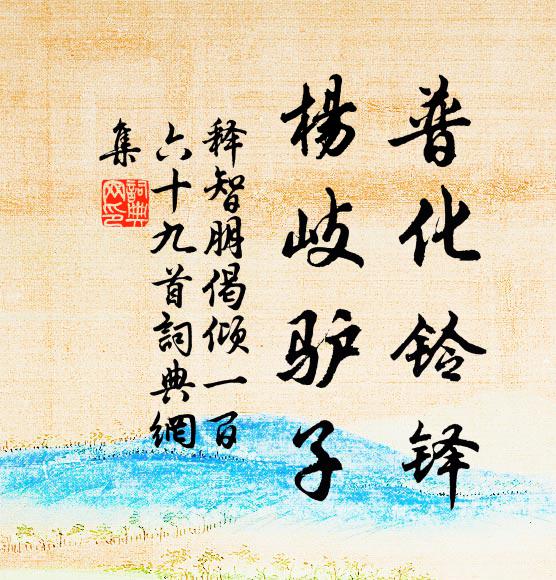 普化铃铎
楊岐驴子
释智朋偈倾一百
六十九首詞典網
集
詞典
网印